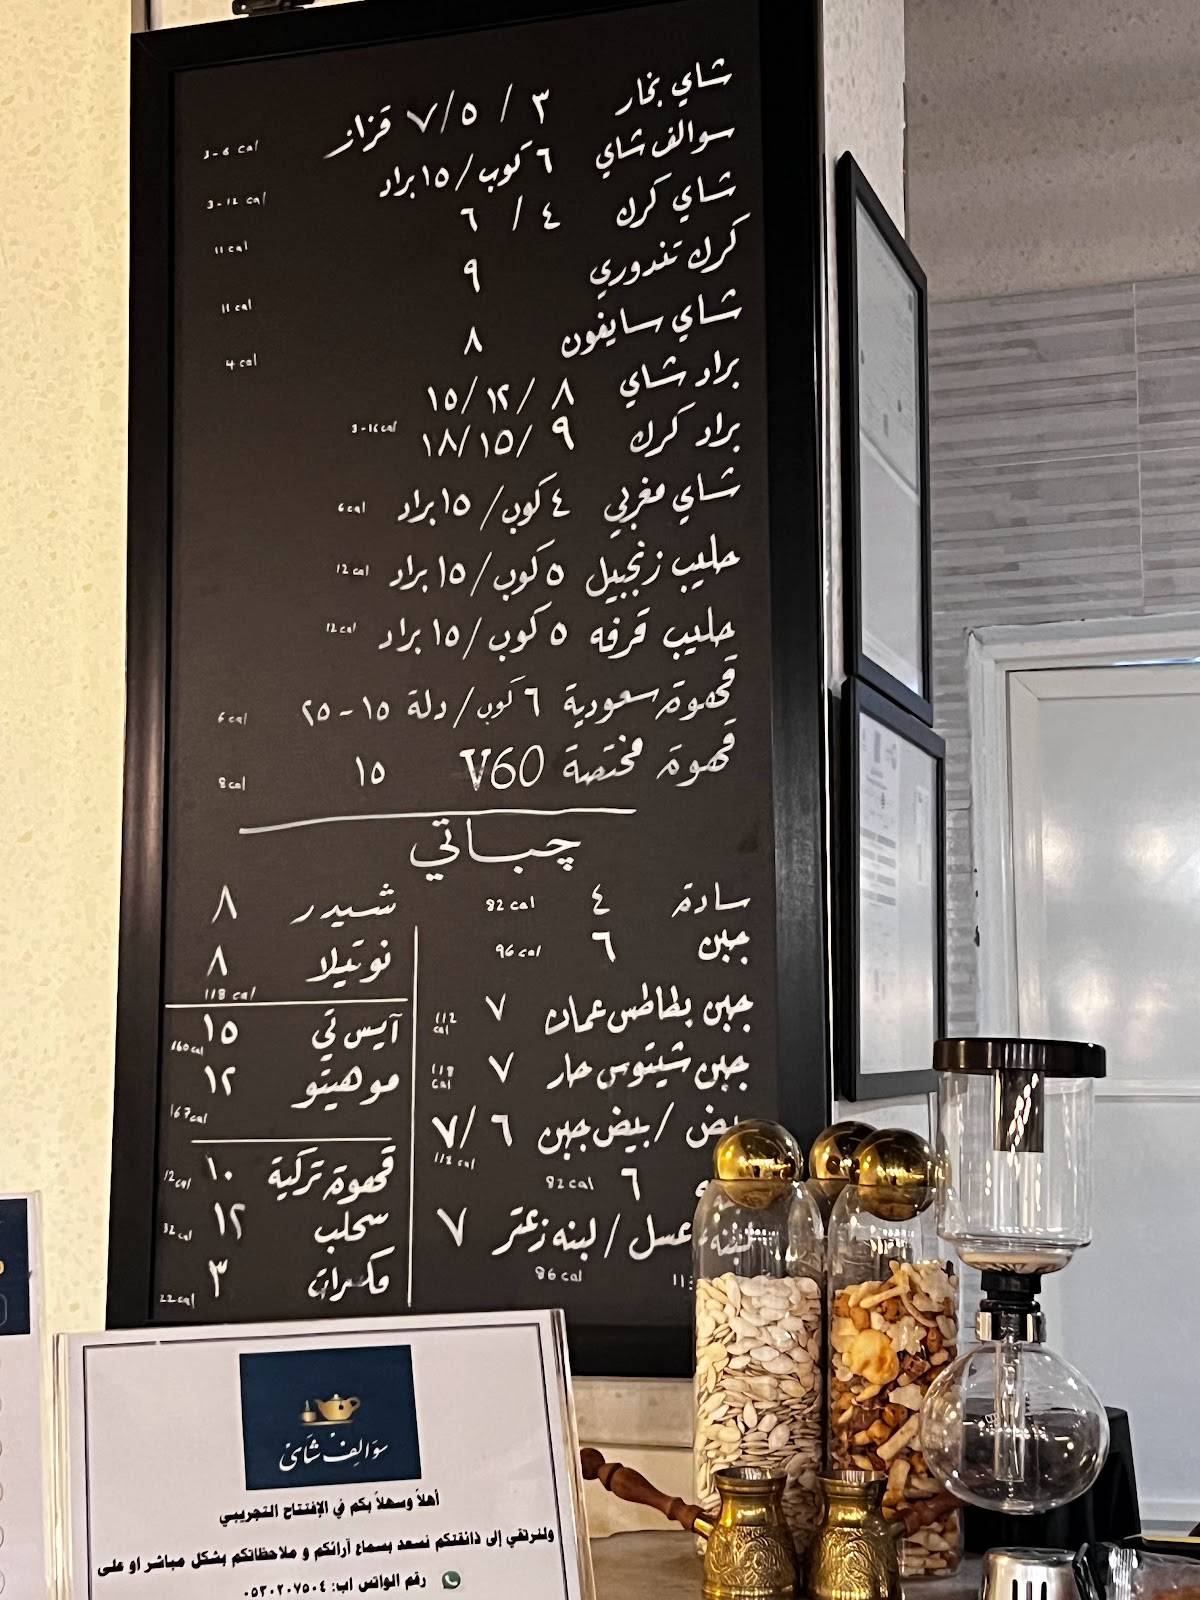 شاي بخار ٣ / ٥ / ٧ قزاز 3-6 cal
سوالف شاي ٦ كوب / ١٥ براد 3-12 cal
شاي كرك ٤ / ٦ 11 cal
كرك تندوري ٩ 11 cal
شاي سايفون ٨ 4 cal
براد شاي ٨ / ١٢ / ١٥
براد كرك ٩ / ١٥ / ١٨ 3-16 cal
شاي مغربي ٤ كوب / ١٥ براد 6 cal
حليب زنجبيل ٥ كوب / ١٥ براد 12 cal
حليب قرفه ٥ كوب / ١٥ براد 12 cal
قهوة سعودية ٦ كوب / دلة ١٥ - ٢٥ 6 cal
قهوة مختصة V60 ١٥ 8 cal
چباتي
سادة ٤ 82 cal
جبن ٦ 96 cal
جبن بطاطس عمان ٧ 112 cal
جبن شيتوس حار ٧ 118 cal
بيض / بيض جبن ٦ / ٧ 112 cal
٦ 82 cal
عسل / لبنه زعتر ٧
86 cal
شيدر ٨
نوتيلا ٨
118 cal
آيس تي ١٥ 160 cal
موهيتو ١٢
167 cal
قهوة تركية ١٠ 12 cal
سحلب ١٢ 32 cal
مكسرات ٣ 22 cal
سوالف شاي
أهلاً وسهلاً بكم في الإفتتاح التجريبي
ولنرتقي إلى ذائقتكم نسعد بسماع آرائكم و ملاحظاتكم بشكل مباشر او على
رقم الواتس اب: ٠٥٣٠٢٠٧٥٠٤